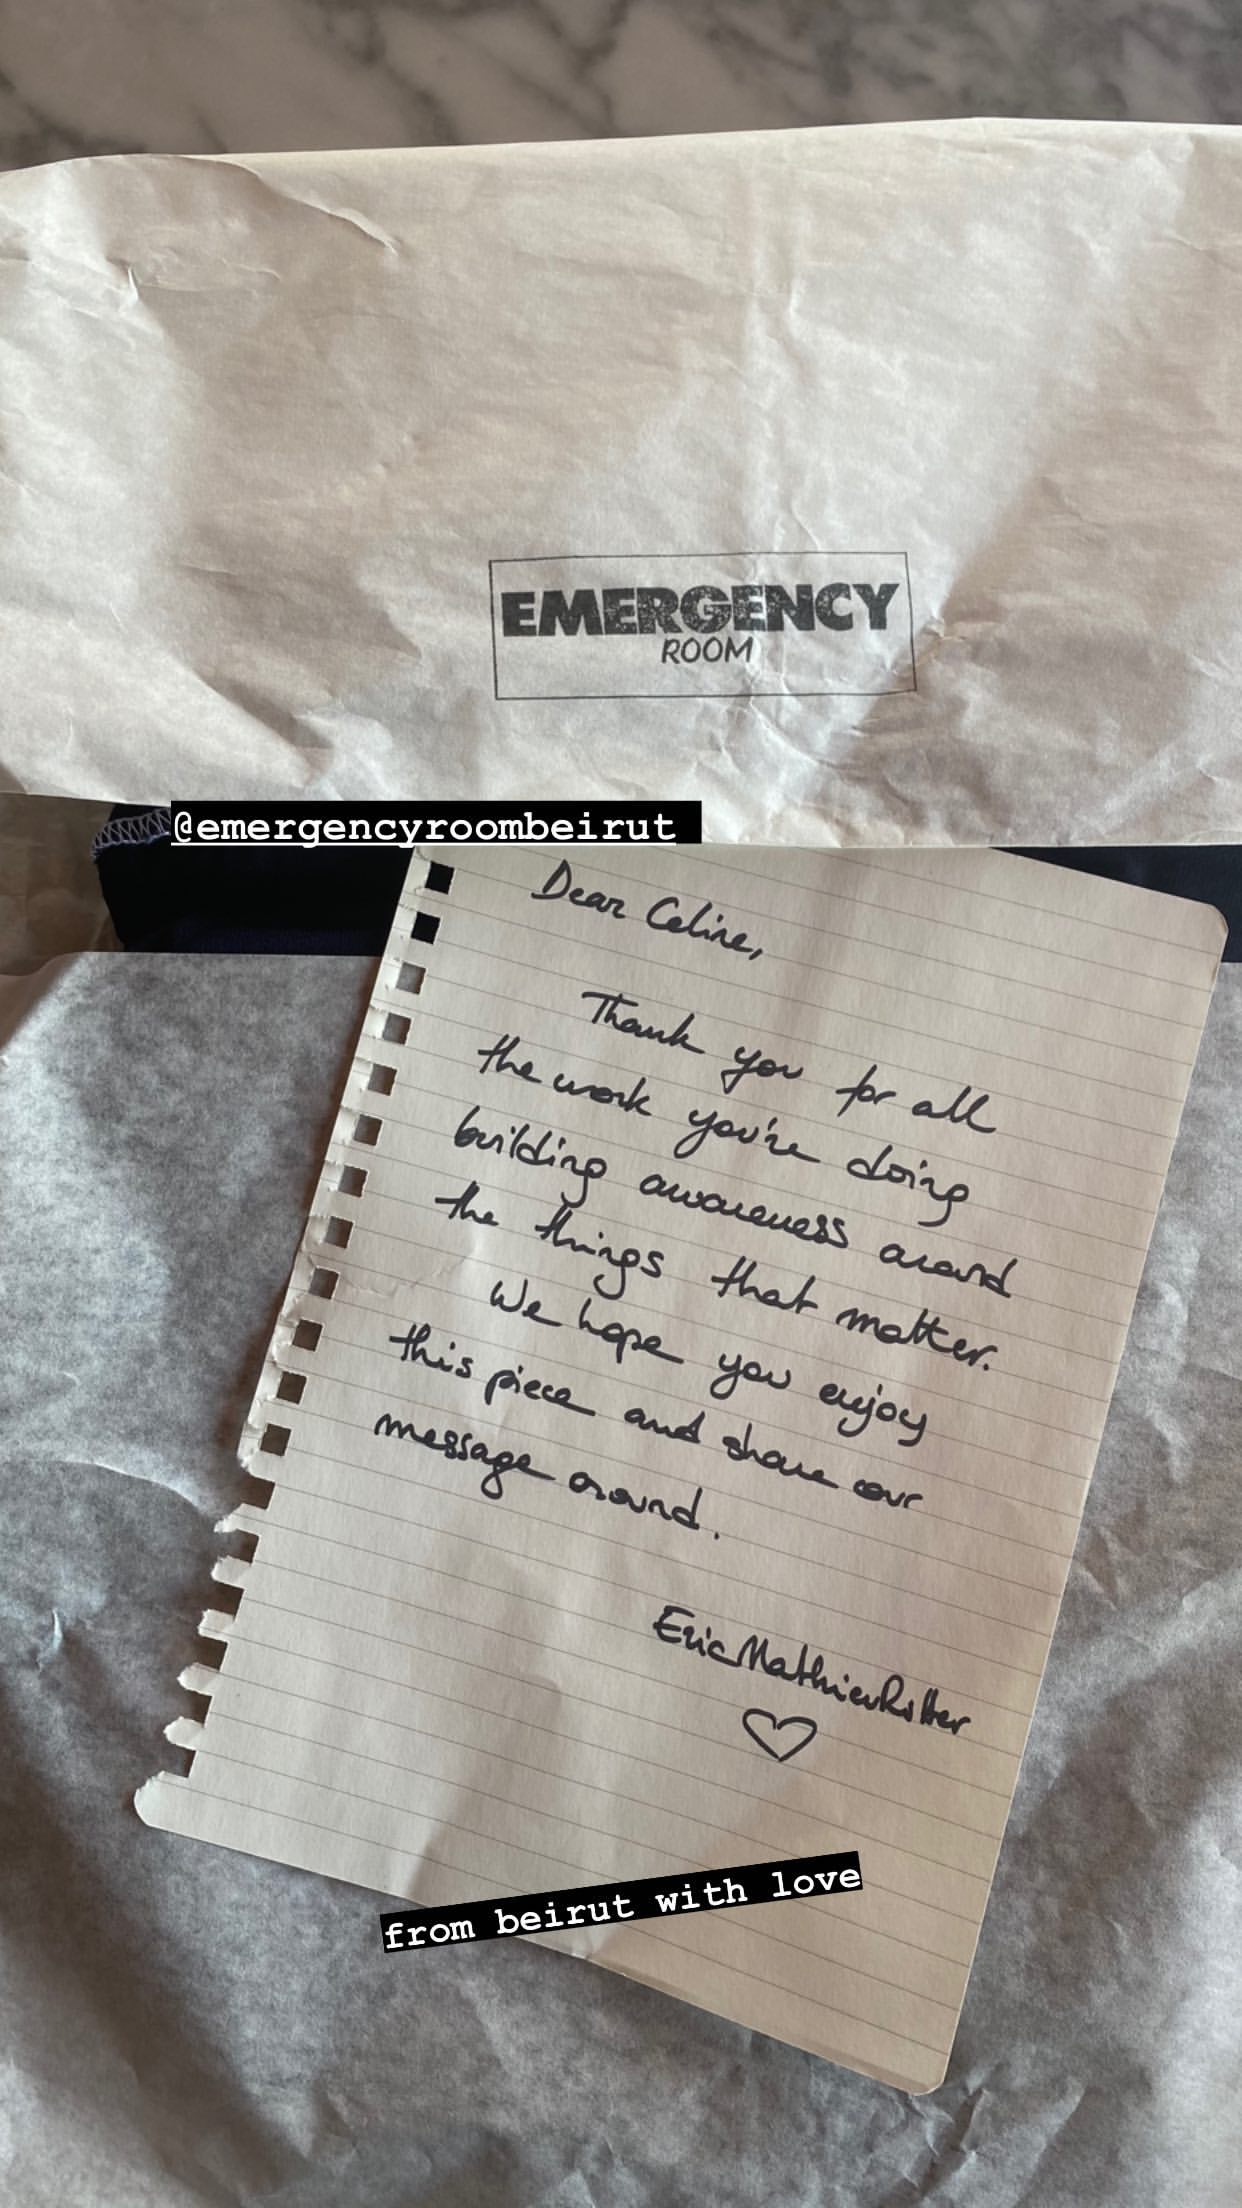 EMERGENCY
ROOM
@emergencyroombeirut
Dear Celine,
Thank you for all
the work you're doing
building awareness around
the things that matter.
We hope you enjoy
this piece and share our
message around.
Eric Mathieu Ritter
from beirut with love